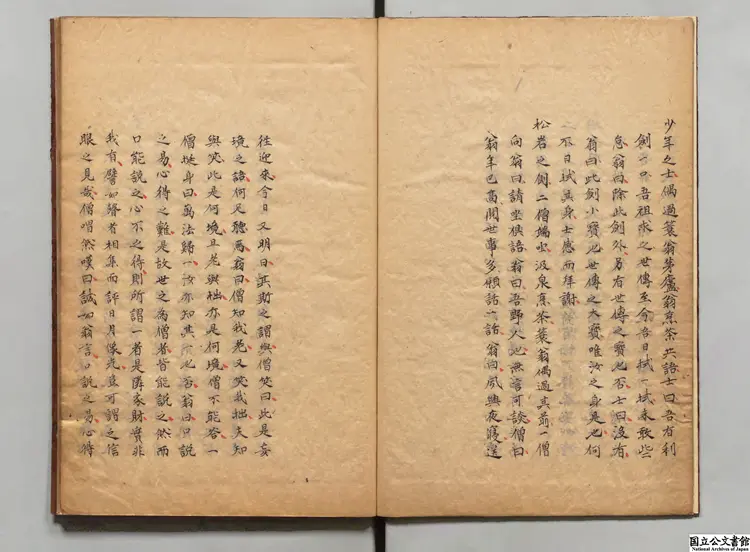 少年之士偶過簑翁茅廬翁烹茶共語士曰吾有利
劍一口吾祖求之世傳至今吾日拭一拭未敢些
怠翁曰除此劍外另有世傳之寶也否士曰沒有
翁曰此劍小寶也世傳之大寶唯汝之身是也何
之不日拭其身士感而拜謝
松岩之側二僧踞坐汲泉烹茶簑翁偶過其前一僧
向翁曰請坐供語翁曰吾郎人也無言可談僧曰
翁年已高閱世事多願話一話翁曰夙興夜寢送
往迎來今日又明日其斯之謂與僧笑曰此是妄
境之語何足聽焉翁曰僧知我老又笑我拙夫知
與笑此是何境且老與拙亦是何境僧不能答一
僧挺身曰萬法歸一汝亦知其一也否翁曰口說
之易心得之難是故世之為僧者皆能說之然而
口能說之心不之得則所謂一者是隣家財寶非
我有譬如瞽者相集而評日月像光豈可謂之信
眼之見哉僧喟然嘆曰誠如翁言口說之易心得
国立公文書館
National Archives of Japan